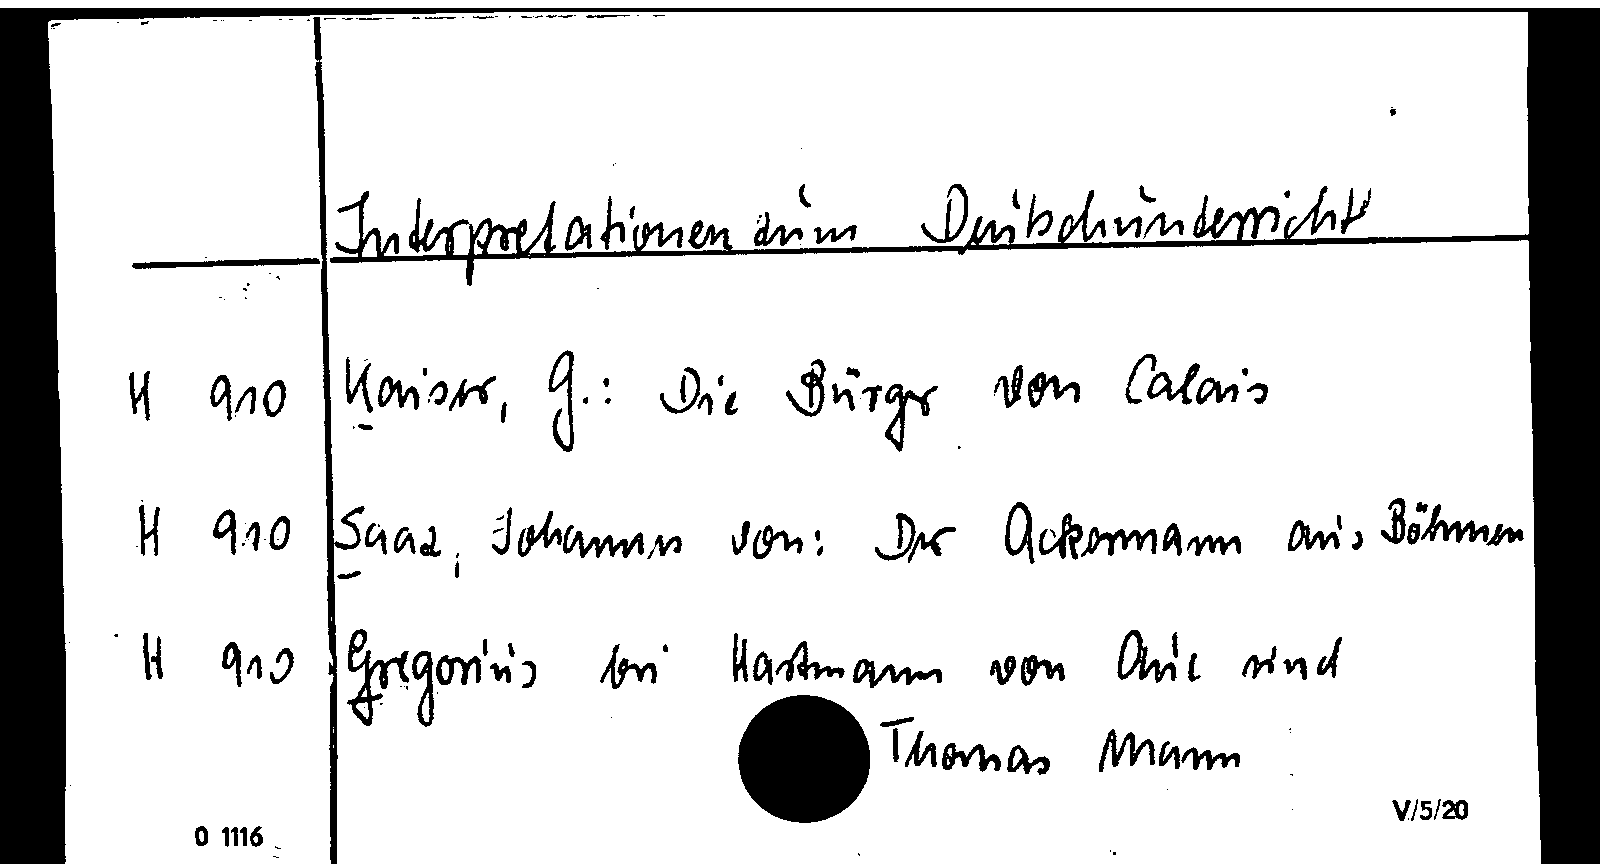 Interpretationen zum Deutschunterricht
H 910 Kaiser, G.: Die Bürger von Calais
H 910 Saaz, Johannes von: Der Ackermann aus Böhmen
H 910 Gregorius bei Hartmann von Aue und
Thomas Mann
V/5/20
O 1116